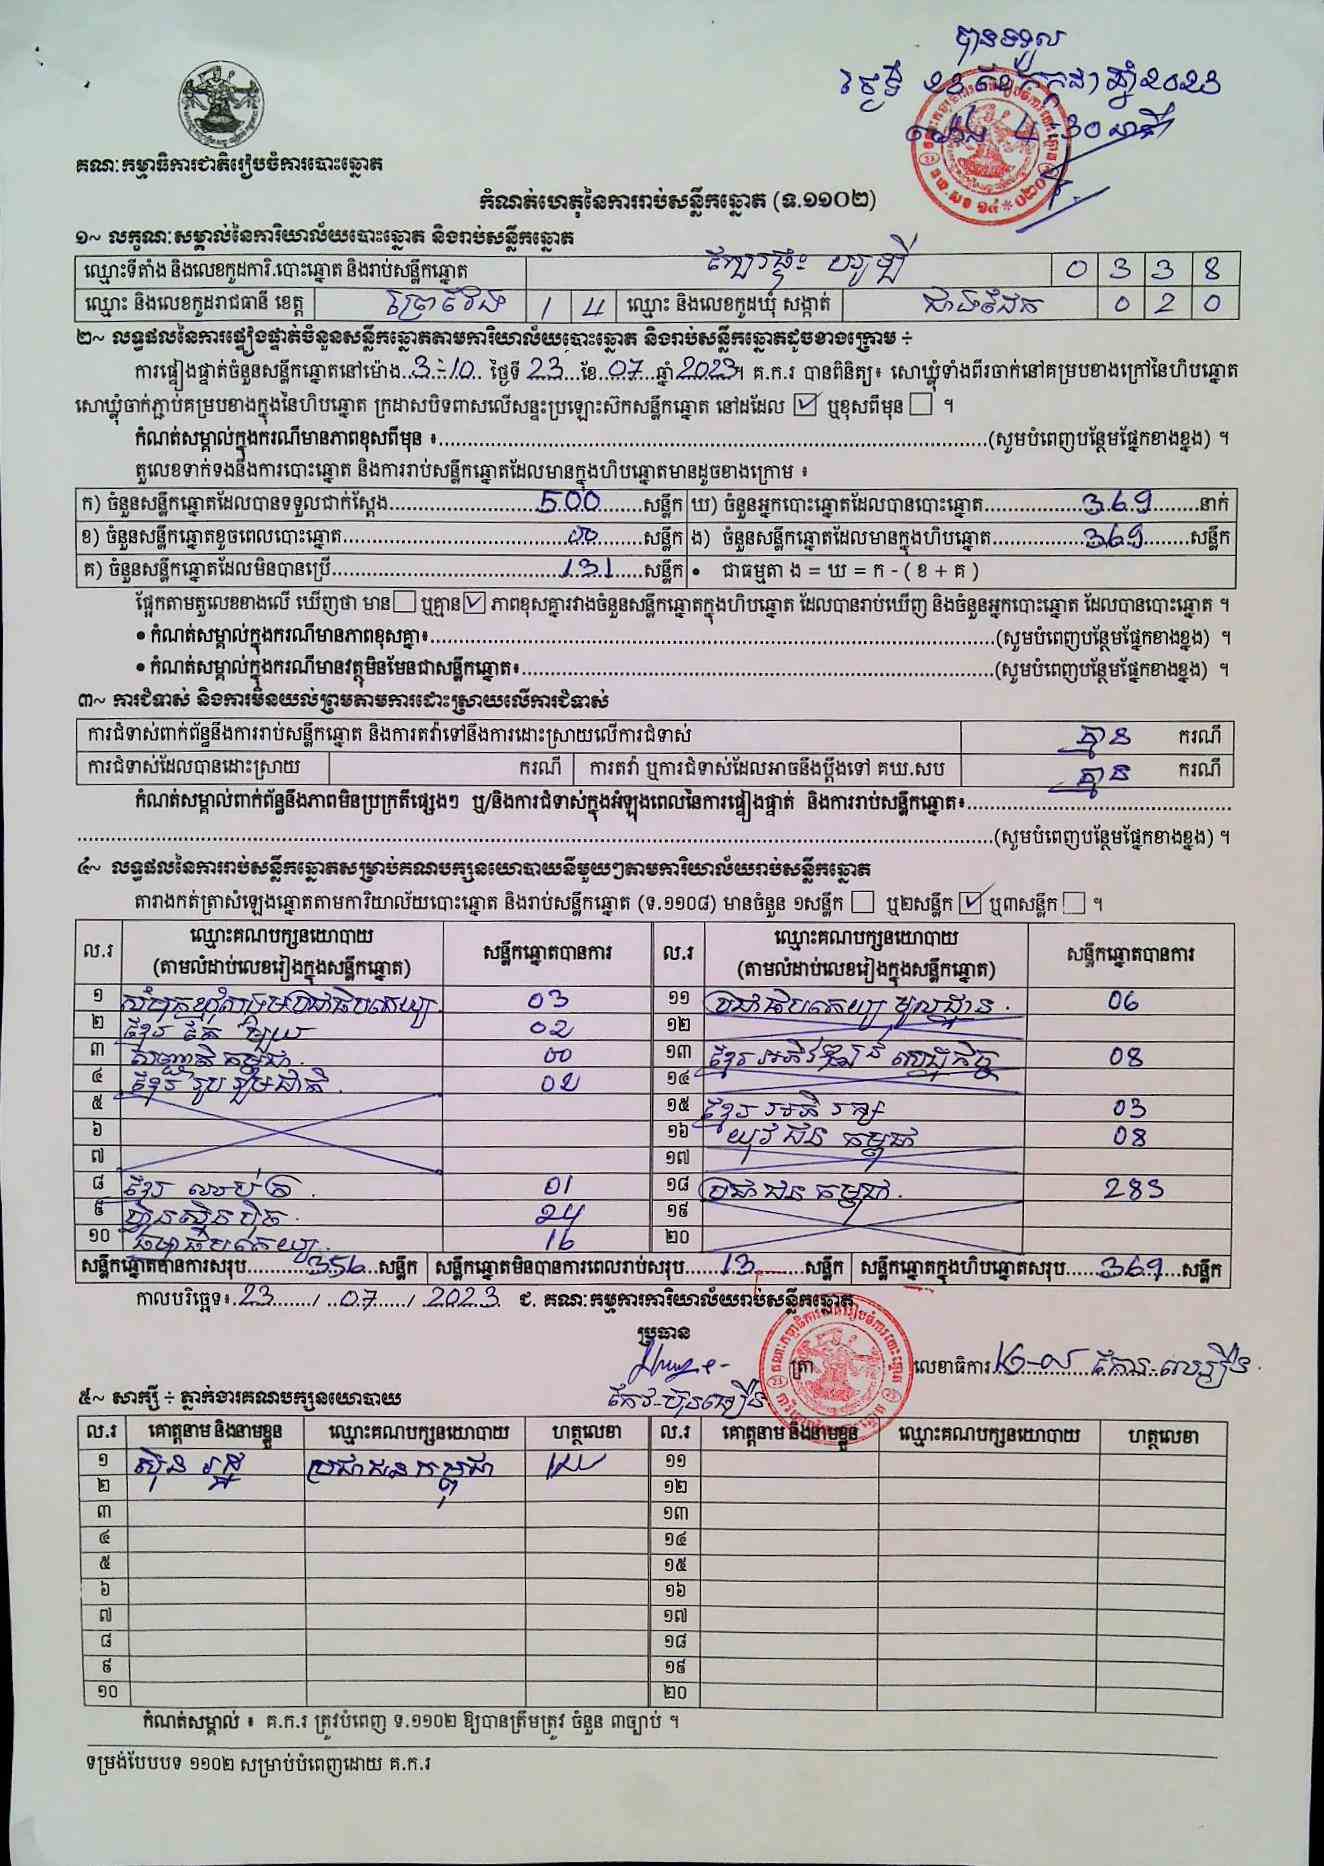 បានទទួល
ថ្ងៃទី 23 ខែកក្កដា ឆ្នាំ 2023
ម៉ោង 4:30 នាទី
គណៈកម្មាធិការជាតិរៀបចំការបោះឆ្នោត
កំណត់ហេតុនៃការរាប់សន្លឹកឆ្នោត (ទ.១១០២)
១~ លក្ខណៈសម្គាល់នៃការិយាល័យបោះឆ្នោត និងរាប់សន្លឹកឆ្នោត
ឈ្មោះទីតាំង និងលេខកូដការិ.បោះឆ្នោត និងរាប់សន្លឹកឆ្នោត 0 3 3 8
ឈ្មោះ និងលេខកូដរាជធានី ខេត្ត ព្រៃវែង 1 4 ឈ្មោះ និងលេខកូដឃុំ សង្កាត់ 0 2 0
២~ លទ្ធផលនៃការផ្ទៀងផ្ទាត់ចំនួនសន្លឹកឆ្នោតតាមការិយាល័យបោះឆ្នោត និងរាប់សន្លឹកឆ្នោតដូចខាងក្រោម ÷
ការផ្ទៀងផ្ទាត់ចំនួនសន្លឹកឆ្នោតនៅម៉ោង 3:10 ថ្ងៃទី 23 ខែ 07 ឆ្នាំ 2023។ គ.ក.រ បានពិនិត្យ៖ សោឃ្លុំទាំងពីរចាក់នៅគម្របខាងក្រៅនៃហិបឆ្នោត
សោឃ្លុំចាក់ភ្ជាប់គម្របខាងក្នុងនៃហិបឆ្នោត ក្រដាសបិទពាសលើសន្ទះប្រឡោះស៊កសន្លឹកឆ្នោត នៅដដែល ☑ ឬខុសពីមុន ☐ ។
កំណត់សម្គាល់ក្នុងករណីមានភាពខុសពីមុន ៖ (សូមបំពេញបន្ថែមផ្នែកខាងខ្នង) ។
តួលេខទាក់ទងនឹងការបោះឆ្នោត និងការរាប់សន្លឹកឆ្នោតដែលមានក្នុងហិបឆ្នោតមានដូចខាងក្រោម ៖
ក) ចំនួនសន្លឹកឆ្នោតដែលបានទទួលជាក់ស្តែង 500 សន្លឹក ឃ) ចំនួនអ្នកបោះឆ្នោតដែលបានបោះឆ្នោត 369 នាក់
ខ) ចំនួនសន្លឹកឆ្នោតខូចពេលបោះឆ្នោត 00 សន្លឹក ង) ចំនួនសន្លឹកឆ្នោតដែលមានក្នុងហិបឆ្នោត 369 សន្លឹក
គ) ចំនួនសន្លឹកឆ្នោតដែលមិនបានប្រើ 131 សន្លឹក • ជាធម្មតា ង = ឃ = ក - ( ខ + គ )
ផ្អែកតាមតួលេខខាងលើ ឃើញថា មាន ☐ ឬគ្មាន ☑ ភាពខុសគ្នារវាងចំនួនសន្លឹកឆ្នោតក្នុងហិបឆ្នោត ដែលបានរាប់ឃើញ និងចំនួនអ្នកបោះឆ្នោត ដែលបានបោះឆ្នោត ។
• កំណត់សម្គាល់ក្នុងករណីមានភាពខុសគ្នា៖ (សូមបំពេញបន្ថែមផ្នែកខាងខ្នង) ។
• កំណត់សម្គាល់ក្នុងករណីមានវត្ថុមិនមែនជាសន្លឹកឆ្នោត៖ (សូមបំពេញបន្ថែមផ្នែកខាងខ្នង) ។
៣~ ការជំទាស់ និងការមិនយល់ព្រមតាមការដោះស្រាយលើការជំទាស់
ការជំទាស់ពាក់ព័ន្ធនឹងការរាប់សន្លឹកឆ្នោត និងការតវ៉ាទៅនឹងការដោះស្រាយលើការជំទាស់ គ្មាន ករណី
ការជំទាស់ដែលបានដោះស្រាយ ករណី ការតវ៉ា ឬការជំទាស់ដែលអាចនឹងប្តឹងទៅ គឃ.សប គ្មាន ករណី
កំណត់សម្គាល់ពាក់ព័ន្ធនឹងភាពមិនប្រក្រតីផ្សេងៗ ឬ/និងការជំទាស់ក្នុងអំឡុងពេលនៃការផ្ទៀងផ្ទាត់ និងការរាប់សន្លឹកឆ្នោត៖
(សូមបំពេញបន្ថែមផ្នែកខាងខ្នង) ។
៤~ លទ្ធផលនៃការរាប់សន្លឹកឆ្នោតសម្រាប់គណបក្សនយោបាយនីមួយៗតាមការិយាល័យរាប់សន្លឹកឆ្នោត
តារាងកត់ត្រាសំឡេងឆ្នោតតាមការិយាល័យបោះឆ្នោត និងរាប់សន្លឹកឆ្នោត (ទ.១១០៨) មានចំនួន ១សន្លឹក ☐ ឬ២សន្លឹក ☑ ឬ៣សន្លឹក ☐ ។
ល.រ ឈ្មោះគណបក្សនយោបាយ (តាមលំដាប់លេខរៀងក្នុងសន្លឹកឆ្នោត) សន្លឹកឆ្នោតបានការ ល.រ ឈ្មោះគណបក្សនយោបាយ (តាមលំដាប់លេខរៀងក្នុងសន្លឹកឆ្នោត) សន្លឹកឆ្នោតបានការ
១ សំបុកឃ្មុំសង្គមប្រជាធិបតេយ្យ 03 ១១ ប្រជាធិបតេយ្យមូលដ្ឋាន 06
២ ខ្មែរតែមួយ 02 ១២
៣ សញ្ជាតិកម្ពុជា 00 ១៣ ខ្មែរអភិវឌ្ឍន៍សេដ្ឋកិច្ច 08
៤ ខ្មែររួបរួមជាតិ 02 ១៤
៥ ១៥ ខ្មែរអភិរក្ស 03
៦ ១៦ យុវជនកម្ពុជា 08
៧ ១៧
៨ ខ្មែរឈប់ក្រ 01 ១៨ ប្រជាជនកម្ពុជា 283
៩ ហ្វ៊ុនស៊ិនប៉ិច 24 ១៩
១០ ធម្មាធិបតេយ្យ 16 ២០
សន្លឹកឆ្នោតបានការសរុប 356 សន្លឹក សន្លឹកឆ្នោតមិនបានការពេលរាប់សរុប 13 សន្លឹក សន្លឹកឆ្នោតក្នុងហិបឆ្នោតសរុប 369 សន្លឹក
កាលបរិច្ឆេទ៖ 23 / 07 / 2023 ជ. គណៈកម្មការការិយាល័យរាប់សន្លឹកឆ្នោត
ប្រធាន
ត្រា លេខាធិការ
៥~ សាក្សី ÷ ភ្នាក់ងារគណបក្សនយោបាយ
ល.រ គោត្តនាម និងនាមខ្លួន ឈ្មោះគណបក្សនយោបាយ ហត្ថលេខា ល.រ គោត្តនាម និងនាមខ្លួន ឈ្មោះគណបក្សនយោបាយ ហត្ថលេខា
១ ប្រជាជនកម្ពុជា ១១
២ ១២
៣ ១៣
៤ ១៤
៥ ១៥
៦ ១៦
៧ ១៧
៨ ១៨
៩ ១៩
១០ ២០
កំណត់សម្គាល់ ៖ គ.ក.រ ត្រូវបំពេញ ទ.១១០២ ឱ្យបានត្រឹមត្រូវ ចំនួន ៣ច្បាប់ ។
ទម្រង់បែបបទ ១១០២ សម្រាប់បំពេញដោយ គ.ក.រ